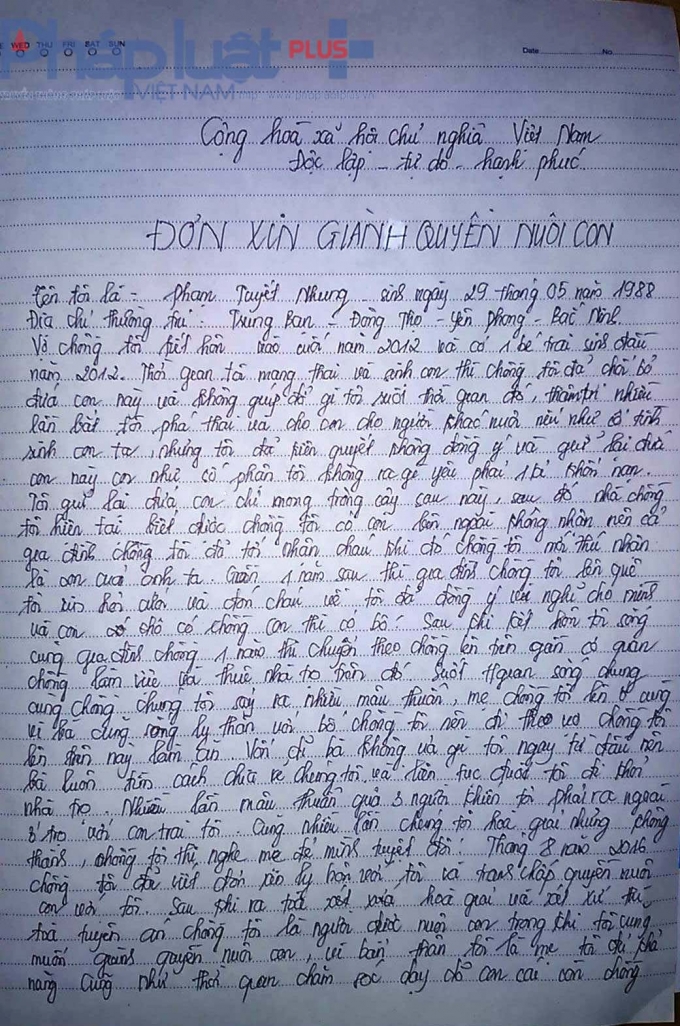 WED THU FRI SAT SUN
Date No
Pháp luật PLUS
VIỆT NAM
Cộng hoà xã hội chủ nghĩa Việt Nam
Độc lập - tự do - hạnh phúc
ĐƠN XIN GIÀNH QUYỀN NUÔI CON
Tên tôi là = Phạm Tuyết Nhung sinh ngày 29 tháng 05 năm 1988
Địa chỉ thường trú : Trung Ban - Đông Thọ - Yên Phong - Bắc Ninh
Vợ chồng tôi kết hôn vào cuối năm 2012 và có 1 bé trai sinh đầu
năm 2012. Thời gian tôi mang thai và sinh con thì chồng tôi đã chối bỏ
đứa con này và không giúp đỡ gì tôi suốt thời gian đó, thậm trí nhiều
lần bắt tôi phá thai và cho con cho người khác nuôi nếu như cố tình
sinh con ra, nhưng tôi đã kiên quyết không đồng ý và giữ lại đứa
con này con như số phận tôi không ra gì yêu phải 1 kẻ khốn nạn.
Tôi giữ lại đứa con chỉ mong trông cậy sau này, sau đó nhà chồng
tôi hiện tại biết được chồng tôi có con bên ngoài không nhận nên cả
gia đình chồng tôi đã tới nhận cháu khi đó chồng tôi mới thú nhận
là con của anh ta. Gần 1 năm sau thì gia đình chồng tôi lên quê
tôi xin hỏi cưới và đón cháu về tôi đã đồng ý vì nghĩ cho mình
và con có chỗ có chồng con thì có bố. Sau khi kết hôn tôi sống
cùng gia đình chồng 1 năm thì chuyển theo chồng lên trên gần cơ quan
chồng làm việc và thuê nhà trọ trên đó. Suốt t/gian sống chung
cùng chồng chúng tôi sảy ra nhiều mâu thuẫn mẹ chồng tôi lên ở cùng
vì bà cũng sống ly thân với bố chồng tôi nên đi theo vợ chồng tôi
lên trên này làm ăn. Vốn dĩ bà không ưa gì tôi ngay từ đầu nên
bà luôn tìm cách chia rẽ chúng tôi và liên tục đuổi tôi đi khỏi
nhà trọ. Nhiều lần mâu thuẫn quá 3 người khiến tôi phải ra ngoài
ở trọ với con trai tôi. Cũng nhiều lần chúng tôi hoà giải nhưng không
thành, chồng tôi thì nghe mẹ đẻ mình tuyệt đối. Tháng 8 năm 2016
chồng tôi đã viết đơn xin ly hôn với tôi và tranh chấp quyền nuôi
con với tôi. Sau khi ra toà hoà giải và xét xử thì
toà tuyên án chồng tôi là người được nuôi con trong khi tôi cũng
muốn giành quyền nuôi con, vì bản thân tôi là mẹ tôi đủ khả
năng cũng như thời gian chăm sóc dạy dỗ con cái còn chồng